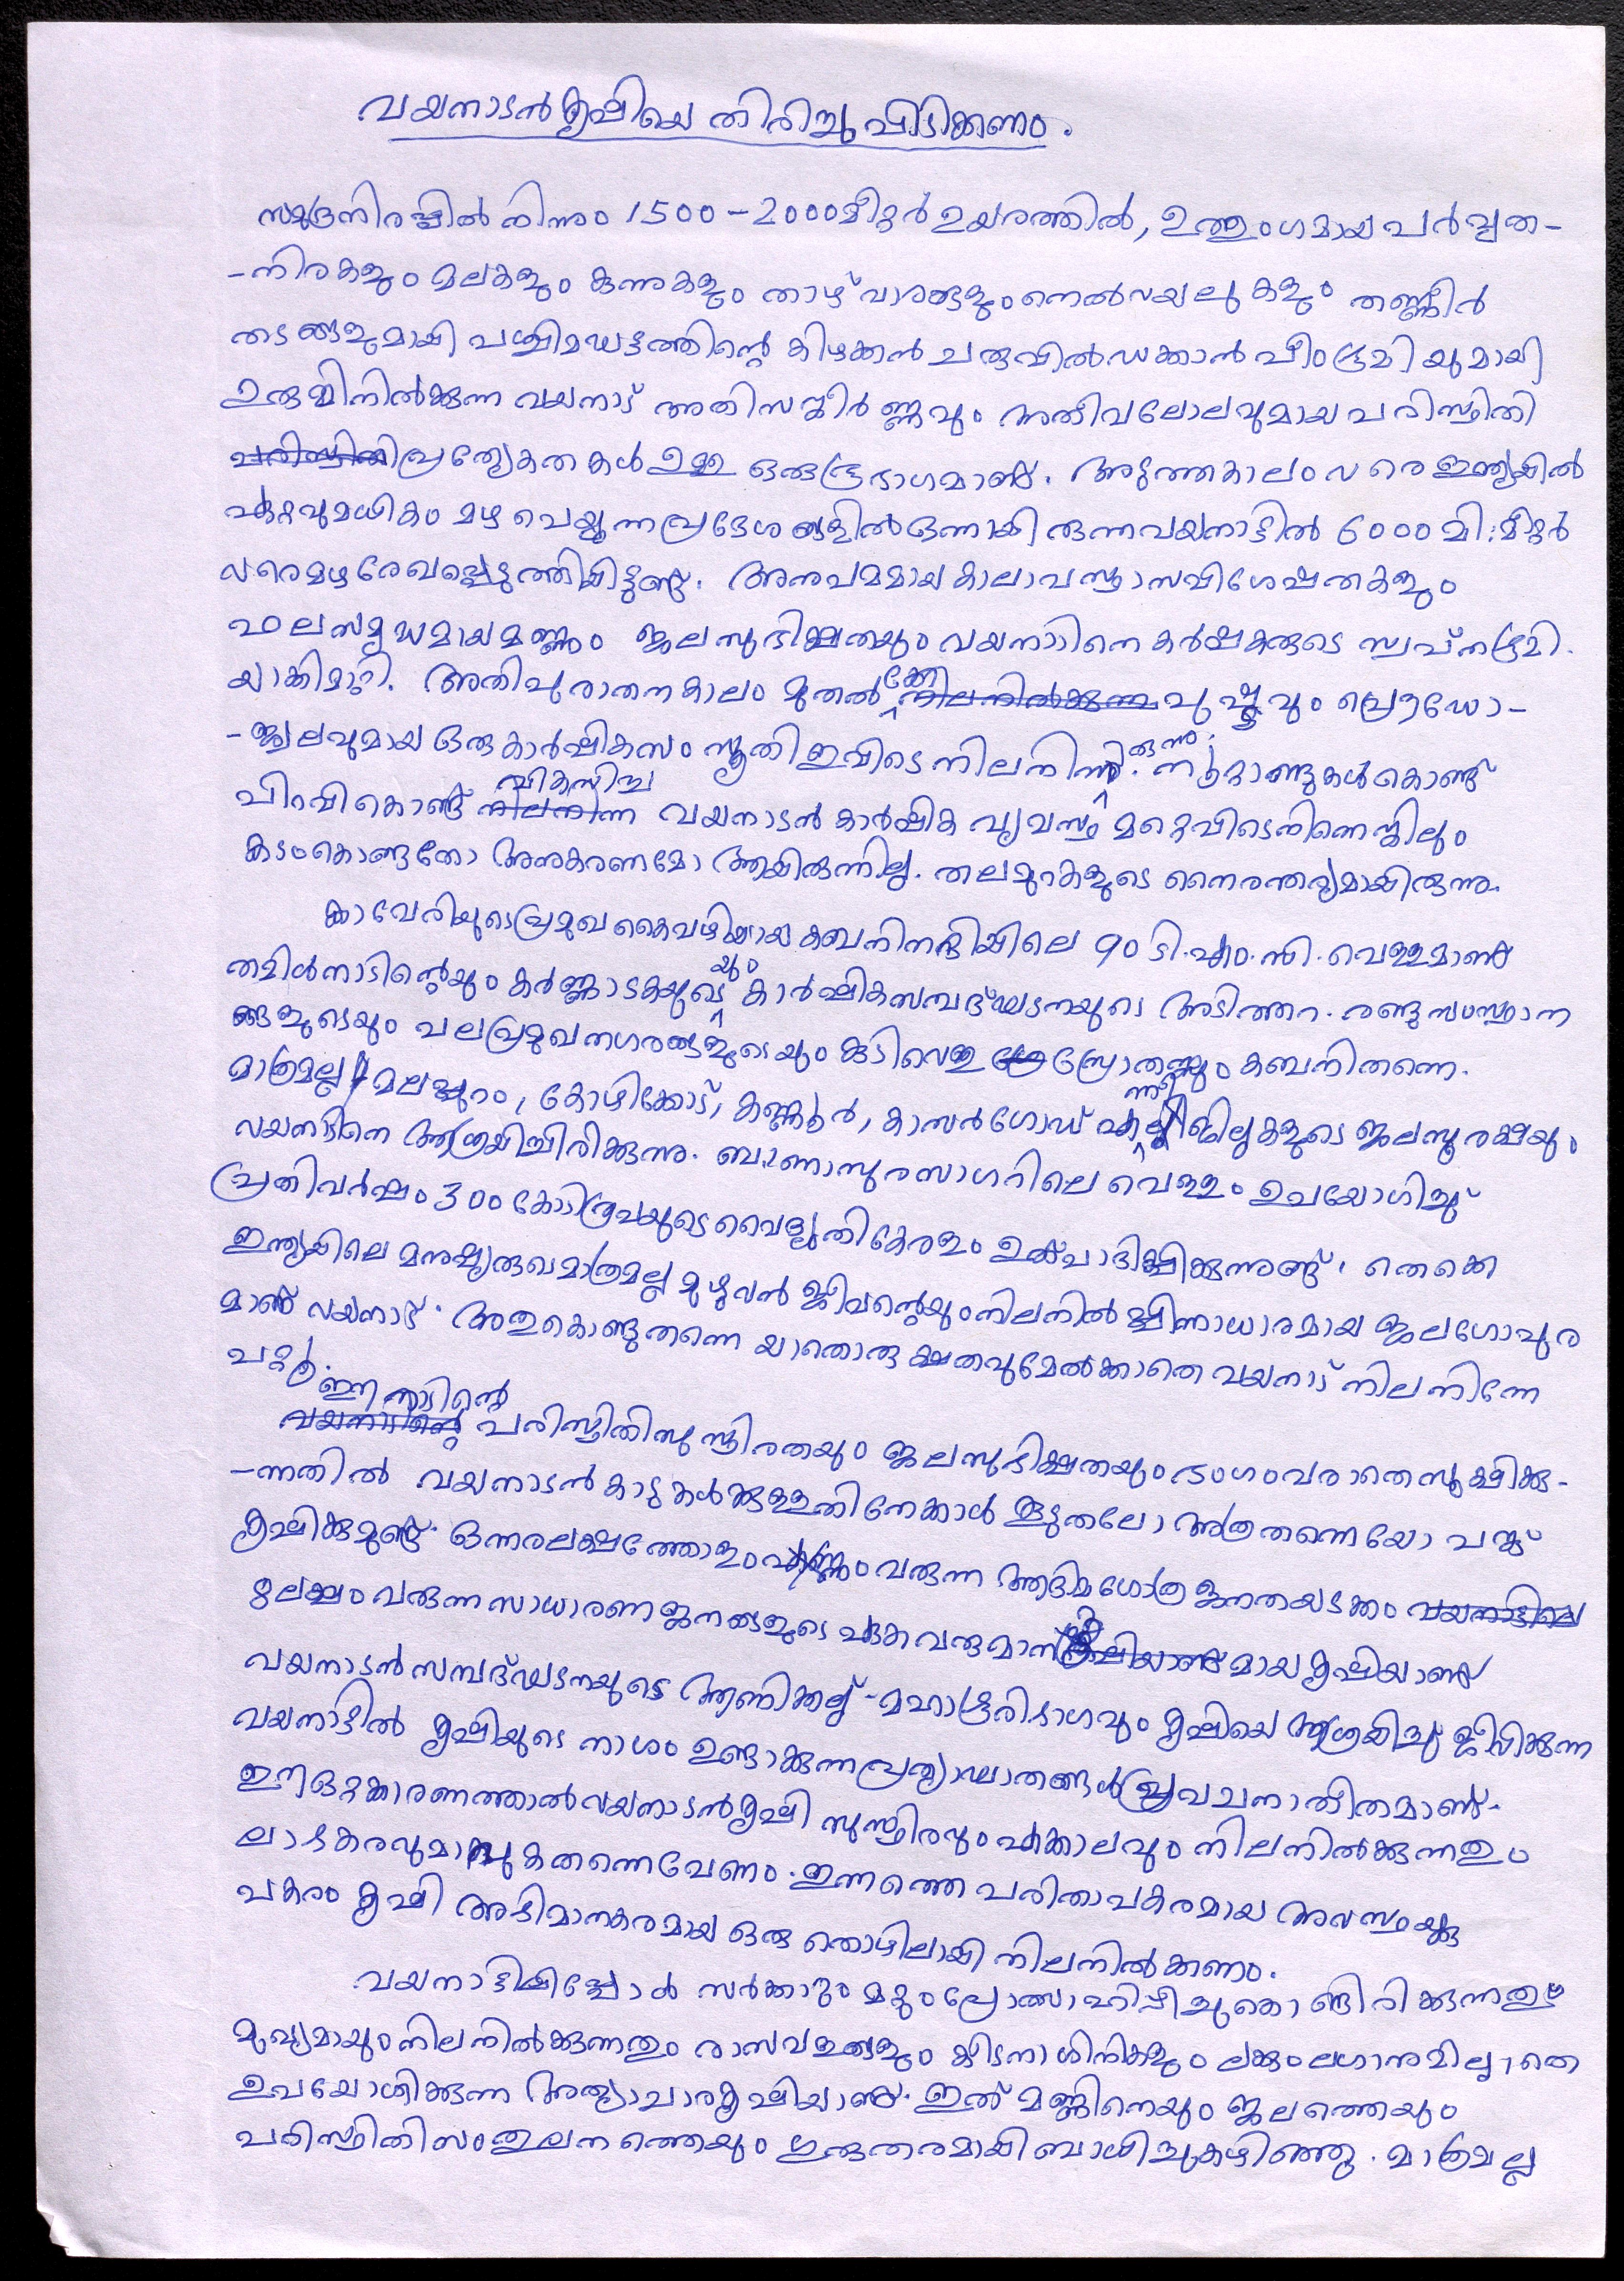 വയനാടൻ കൃഷിയെ തിരിച്ചു പിടിക്കണം.
സമുദ്രനിരപ്പിൽ നിന്നും 1500-2000 മീറ്റർ ഉയരത്തിൽ, ഉത്തുംഗമായ പർവ്വത-
-നിരകളും മലകളും കുന്നുകളും താഴ്വാരങ്ങളും നെൽവയലുകളും തണ്ണീർ
തടങ്ങളുമായി പശ്ചിമഘട്ടത്തിന്റെ കിഴക്കൻ ചരുവിൽ ഡക്കാൻ പീഠഭൂമിയുമായി
ഉരുമ്മിനിൽക്കുന്ന വയനാട് അതിസങ്കീർണ്ണവും അതീവലോലവുമായ പരിസ്ഥിതി
പ്രത്യേകതകൾ ഉള്ള ഒരു ഭൂഭാഗമാണ്. അടുത്തകാലം വരെ ഇന്ത്യയിൽ
ഏറ്റവുമധികം മഴ പെയ്യുന്ന പ്രദേശങ്ങളിൽ ഒന്നായിരുന്ന വയനാട്ടിൽ 6000 മി:മീറ്റർ
വരെ മഴ രേഖപ്പെടുത്തിയിട്ടുണ്ട്. അനുപമമായ കാലാവസ്ഥാസവിശേഷതകളും
ഫലസമൃദ്ധമായ മണ്ണും ജലസുഭിക്ഷതയും വയനാടിനെ കർഷകരുടെ സ്വപ്നഭൂമി
യാക്കിമാറ്റി. അതിപുരാതന കാലം മുതൽക്കേ പുഷ്ടവും പ്രൌഢോ-
-ജ്ജ്വലവുമായ ഒരു കാർഷികസംസ്കൃതി ഇവിടെ നിലനിന്നിരുന്നു. നൂറ്റാണ്ടുകൾകൊണ്ട്
പിറവികൊണ്ട് വികസിച്ച വയനാടൻ കാർഷിക വ്യവസ്ഥ മറ്റെവിടെനിന്നെങ്കിലും
കടംകൊണ്ടതോ അനുകരണമോ ആയിരുന്നില്ല. തലമുറകളുടെ നൈരന്തര്യമായിരുന്നു.
കാവേരിയുടെ പ്രമുഖ കൈവഴിയായ കബനിനദിയിലെ 90 ടി.എം.സി. വെള്ളമാണ്
തമിൾനാടിന്റെയും കർണ്ണാടകയുടെയും കാർഷികസമ്പദ്ഘടനയുടെ അടിത്തറ. രണ്ടു സംസ്ഥാന
ങ്ങളുടെയും പല പ്രമുഖ നഗരങ്ങളുടെയും കുടിവെള്ള സ്രോതസ്സും കബനിതന്നെ.
മാത്രമല്ല മലപ്പുറം, കോഴിക്കോട്, കണ്ണൂർ, കാസർഗോഡ് എന്നീ ജില്ലകളുടെ ജലസുരക്ഷയും
വയനാടിനെ ആശ്രയിച്ചിരിക്കുന്നു. ബാണാസുരസാഗറിലെ വെള്ളം ഉപയോഗിച്ച്
പ്രതിവർഷം 300 കോടിരൂപയുടെ വൈദ്യുതി കേരളം ഉത്പാദിപ്പിക്കുന്നുണ്ട്. തെക്കെ
ഇന്ത്യയിലെ മനുഷ്യരുടെ മാത്രമല്ല മുഴുവൻ ജീവന്റെയും നിലനിൽപ്പിന്നാധാരമായ ജലഗോപുര
മാണ് വയനാട്. അതുകൊണ്ടുതന്നെ യാതൊരു ക്ഷതവുമേൽക്കാതെ വയനാട് നിലനിന്നേ
പറ്റൂ.
ഈ നാടിന്റെ പരിസ്ഥിതിസുസ്ഥിരതയും ജലസുഭിക്ഷതയും ഭംഗംവരാതെ സൂക്ഷിക്കു-
-ന്നതിൽ വയനാടൻ കാടുകൾക്കുള്ളതിനേക്കാൾ കൂടുതലോ അത്രതന്നെയോ പങ്ക്
കൃഷിക്കുമുണ്ട്. ഒന്നരലക്ഷത്തോളം എണ്ണം വരുന്ന ആദിമഗോത്ര ജനതയടക്കം
8 ലക്ഷം വരുന്ന സാധാരണ ജനങ്ങളുടെ ഏക വരുമാനമായ കൃഷിയാണ്
വയനാടൻ സമ്പദ്ഘടനയുടെ ആണിക്കല്ല് - മഹാഭൂരിഭാഗവും കൃഷിയെ ആശ്രയിച്ച് ജീവിക്കുന്ന
വയനാട്ടിൽ കൃഷിയുടെ നാശം ഉണ്ടാക്കുന്ന പ്രത്യാഘാതങ്ങൾ പ്രവചനാതീതമാണ്.
ഈ ഒറ്റക്കാരണത്താൽ വയനാടൻ കൃഷി സുസ്ഥിരവും എക്കാലവും നിലനിൽക്കുന്നതും
ലാഭകരവുമാവുകതന്നെ വേണം. ഇന്നത്തെ പരിതാപകരമായ അവസ്ഥയ്ക്കു
പകരം കൃഷി അഭിമാനകരമായ ഒരു തൊഴിലായി നിലനിൽക്കണം.
വയനാട്ടിലിപ്പോൾ സർക്കാറും മറ്റും പ്രോത്സാഹിപ്പിച്ചുകൊണ്ടിരിക്കുന്നതും
മുഖ്യമായും നിലനിൽക്കുന്നതും രാസവളങ്ങളും കീടനാശിനികളും ലക്കും ലഗാനുമില്ലാതെ
ഉപയോഗിക്കുന്ന അത്യാചാരകൃഷിയാണ്. ഇത് മണ്ണിനെയും ജലത്തെയും
പരിസ്ഥിതിസംതുലനത്തെയും ഗുരുതരമായി ബാധിച്ചുകഴിഞ്ഞു. മാത്രമല്ല